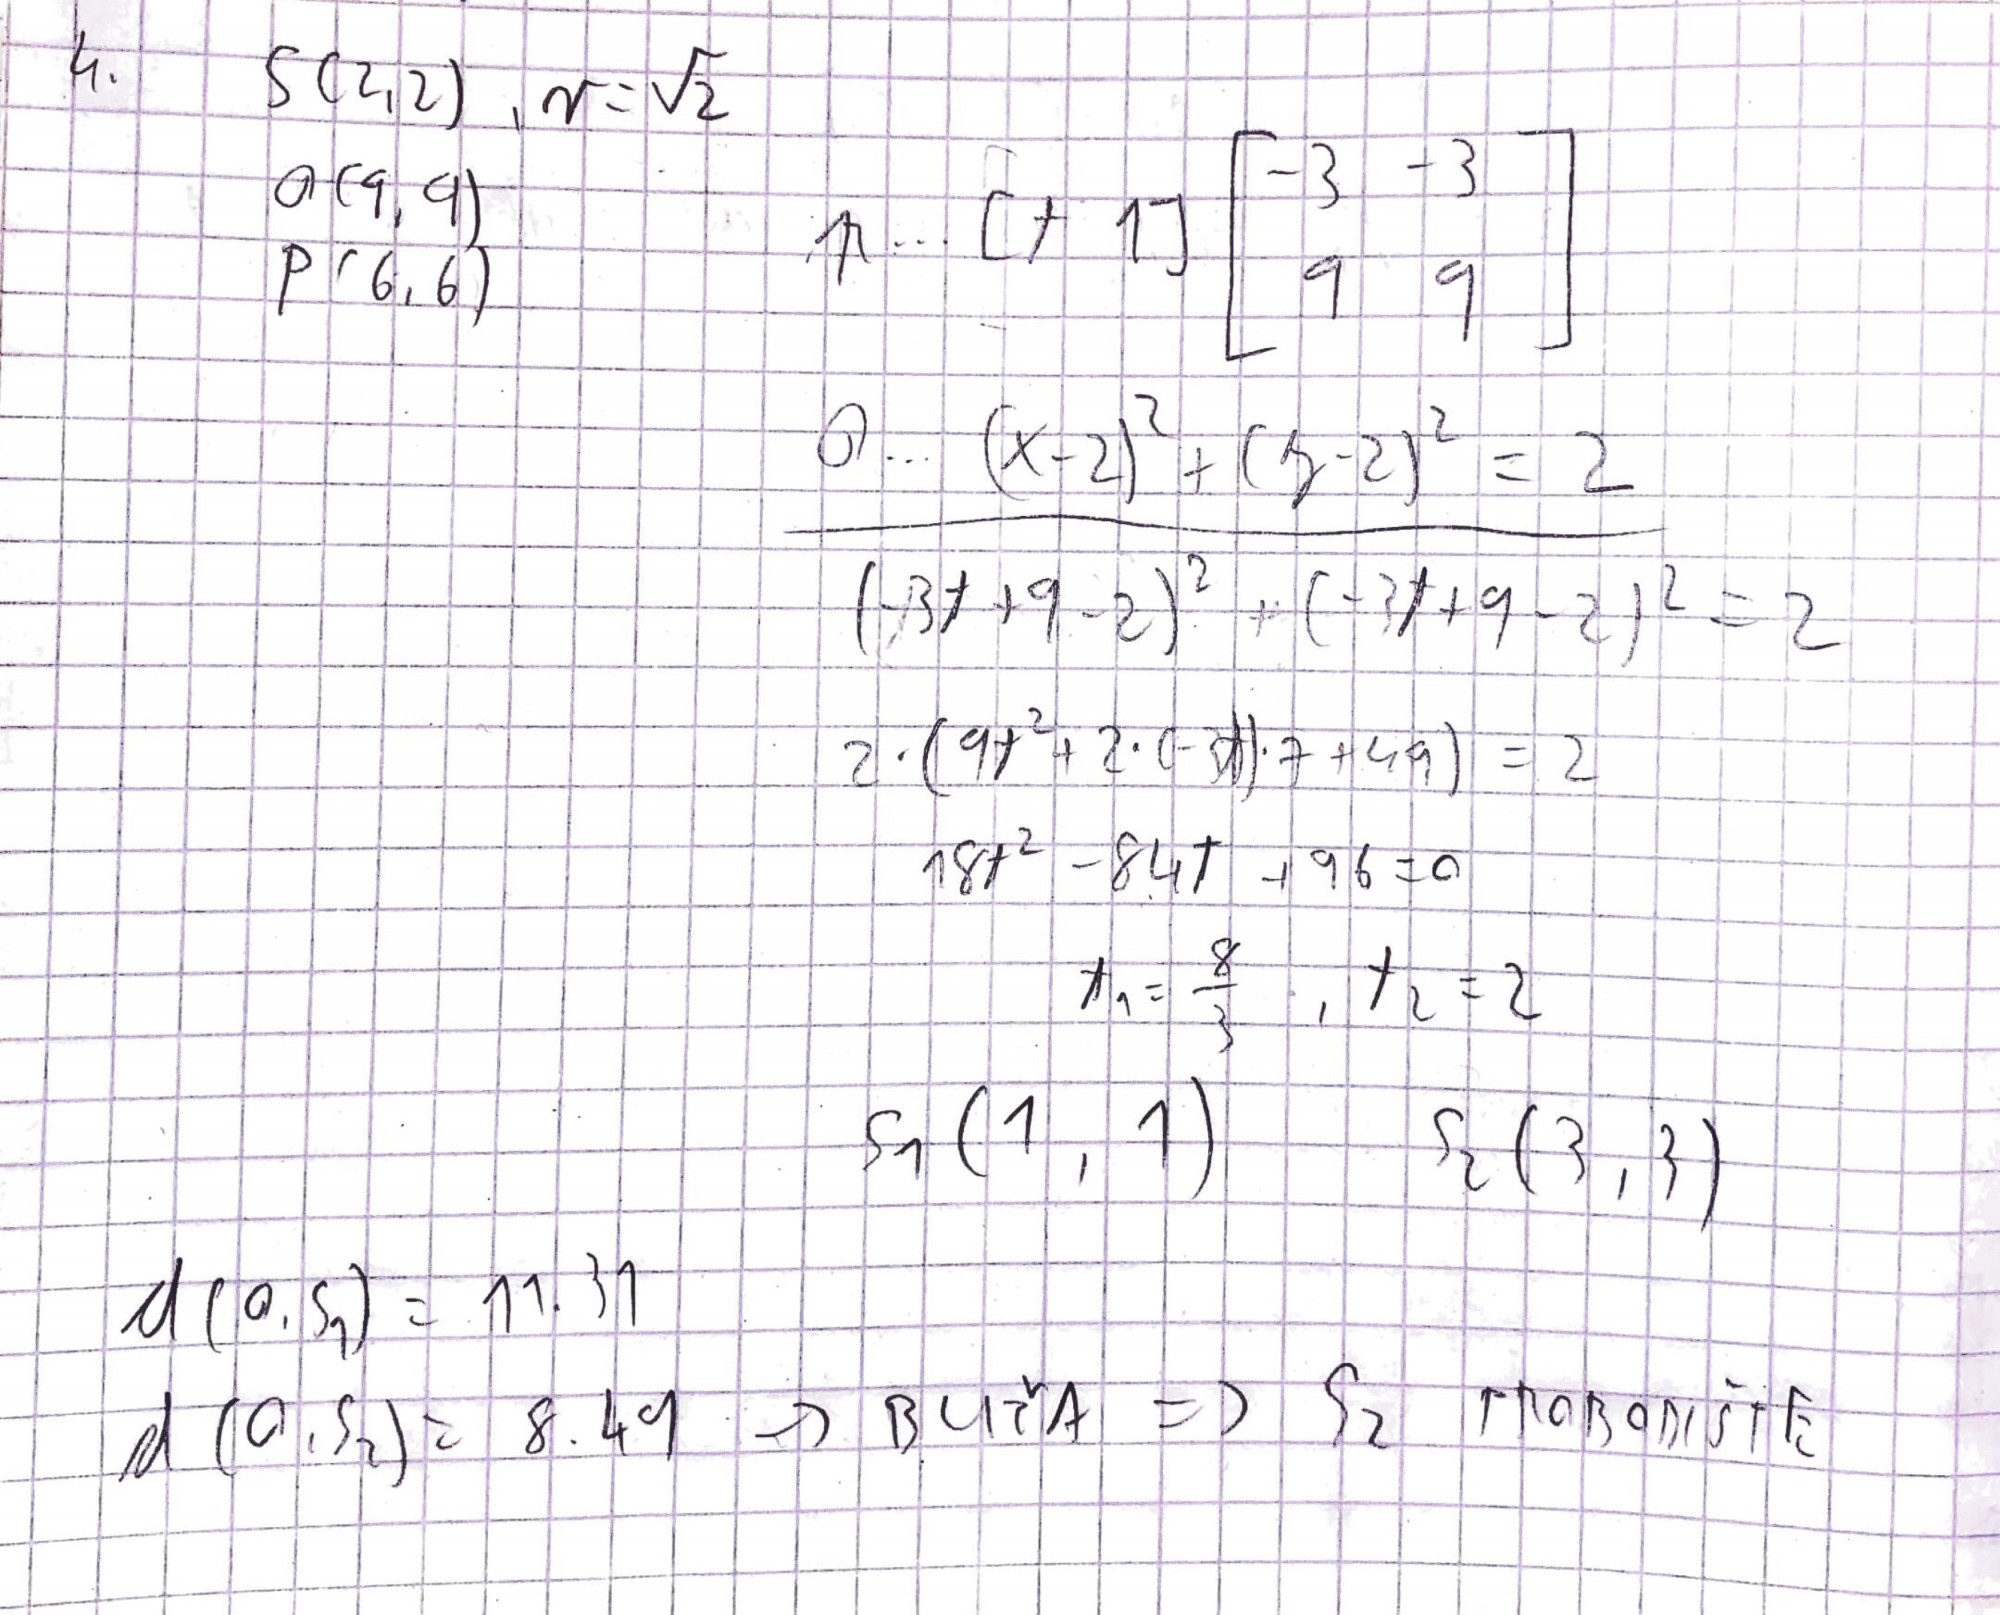 4.
S(2,2), r=√2
O(9,9)
P(6,6)
p... [t 1] [-3 -3
9 9]
O... (x-2)² + (y-2)² = 2
(-3t+9-2)² + (-3t+9-2)² = 2
2·(9t²+2·(-3t)·7+49) = 2
18t² -84t +96=0
t₁= 8/3, t₂=2
S₁(1,1) S₂(3,3)
d(O,S₁) = 11.31
d(O,S₂) = 8.49 → BLIŽŠÍ => S₂ PROBODIŠTĚ